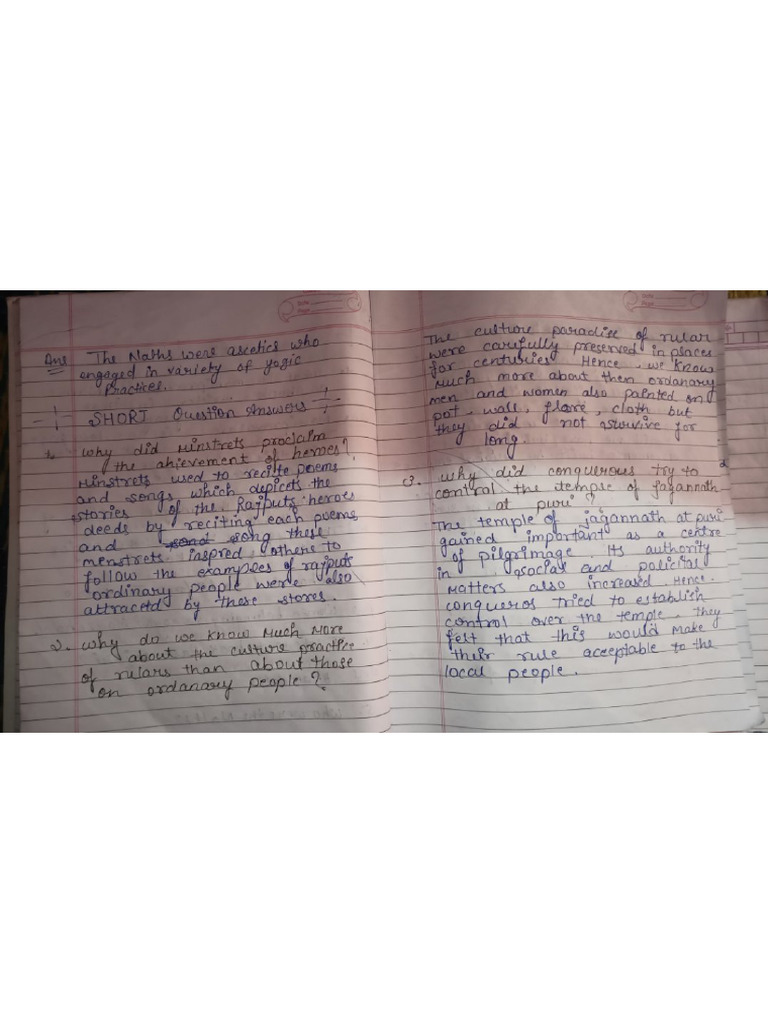 Ans The Naths were ascetics who
engaged in variety of yogic
Practices.
SHORT Question Answers
1. Why did Minstrets proclaim
the ahievement of heroes?
Minstrets used to recilte poems
and songs which depicts the
stories of the Rajputs heroes
deeds by reciting each poems
and song these
menstrets inspred others to
follow the examples of rajputs
ordinary people were also
attracetd by these stores.
2. Why do we know Much More
about the culture practice
of rulars than about those
on ordanary people?
The culture paradise of rular
were carefully preserved in places
for centuries Hence, we know
Much more about them ordanary
men and women also painted on
pot, wall, flore, cloth but
they did not survive for
long.
3. Why did conquerous try to
control the temple of jagannath
at puri?
The temple of jagannath at puri
gained important as a centre
of pilgrimage. Its authority
in social and policias
Matters also increased. Hence.
conqueros tried to establish
control over the temple. they
felt that this would make
their rule acceptable to the
local people.